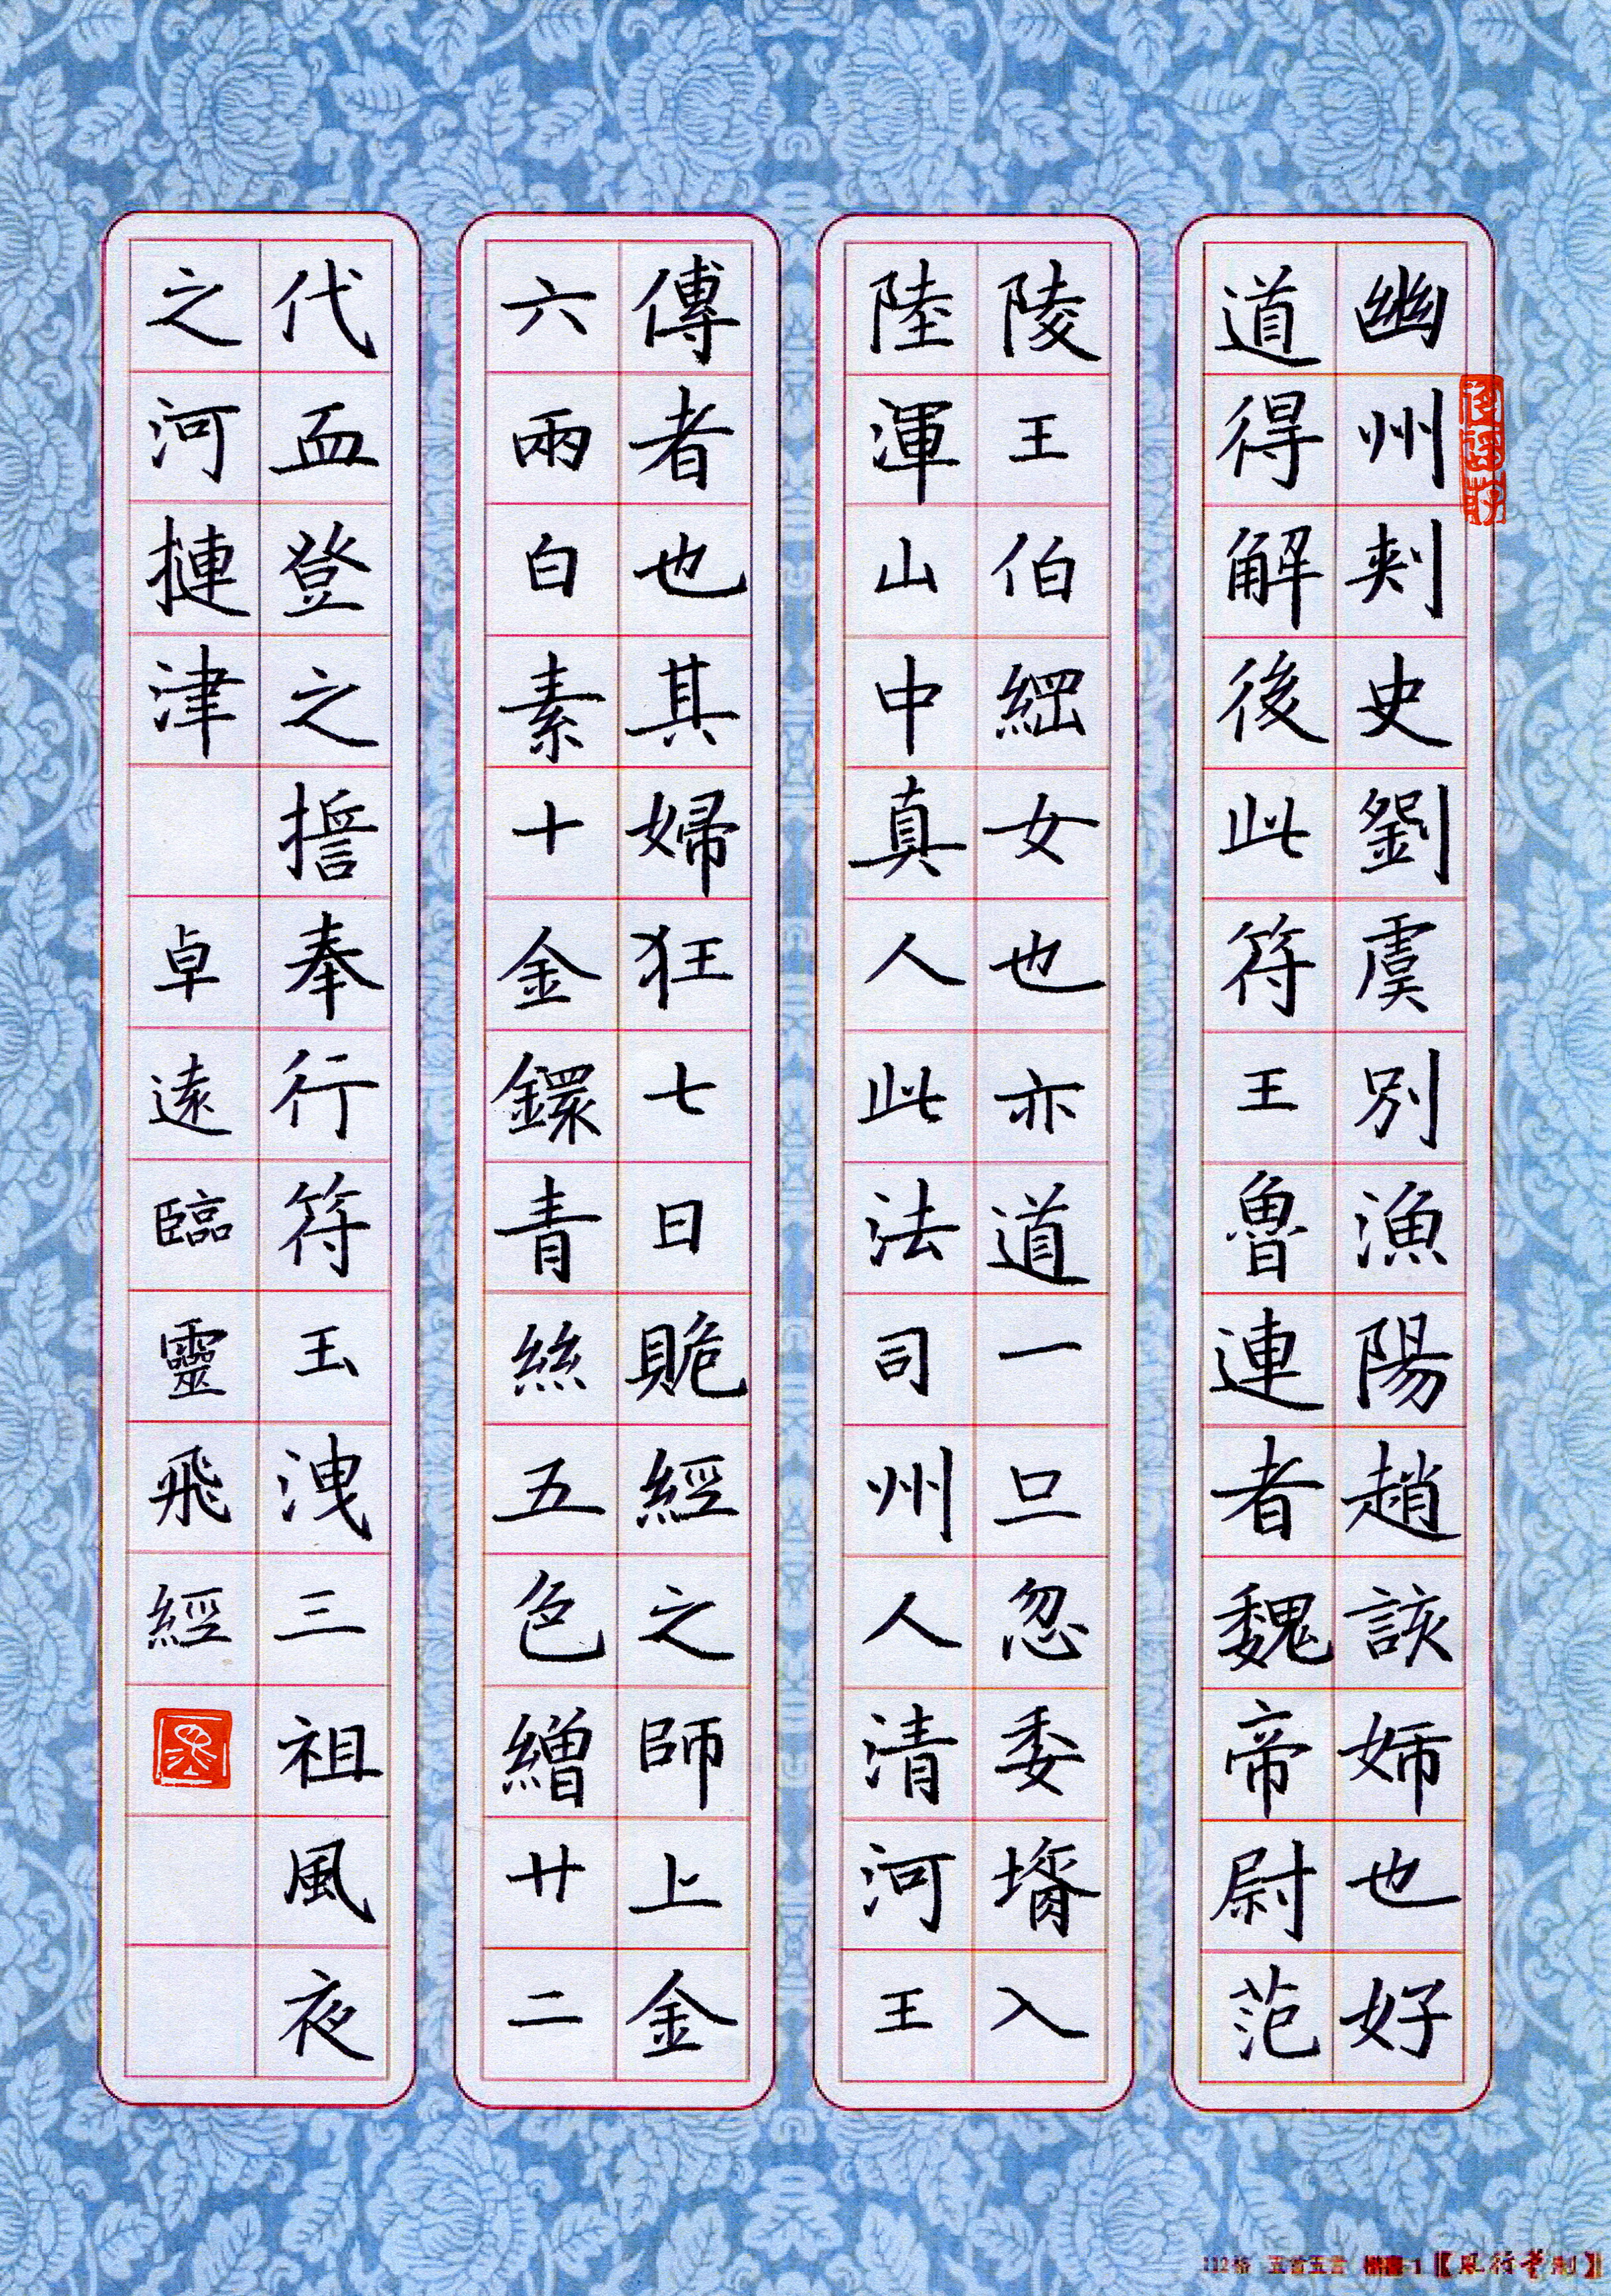 幽州刾史劉虞別漁陽趙該姉也好
道得解後此符王魯連者魏帝尉范
陵王伯綱女也亦道一旦忽委壻入
陸渾山中真人此法司州人清河王
傳者也其婦狂七日貱經之師上金
六兩白素十金鐶青絲五色繒廿二
代血登之㨗奉行符玉洩三祖風夜
之河摙津 卓遠臨靈飛經
112格 五首五言